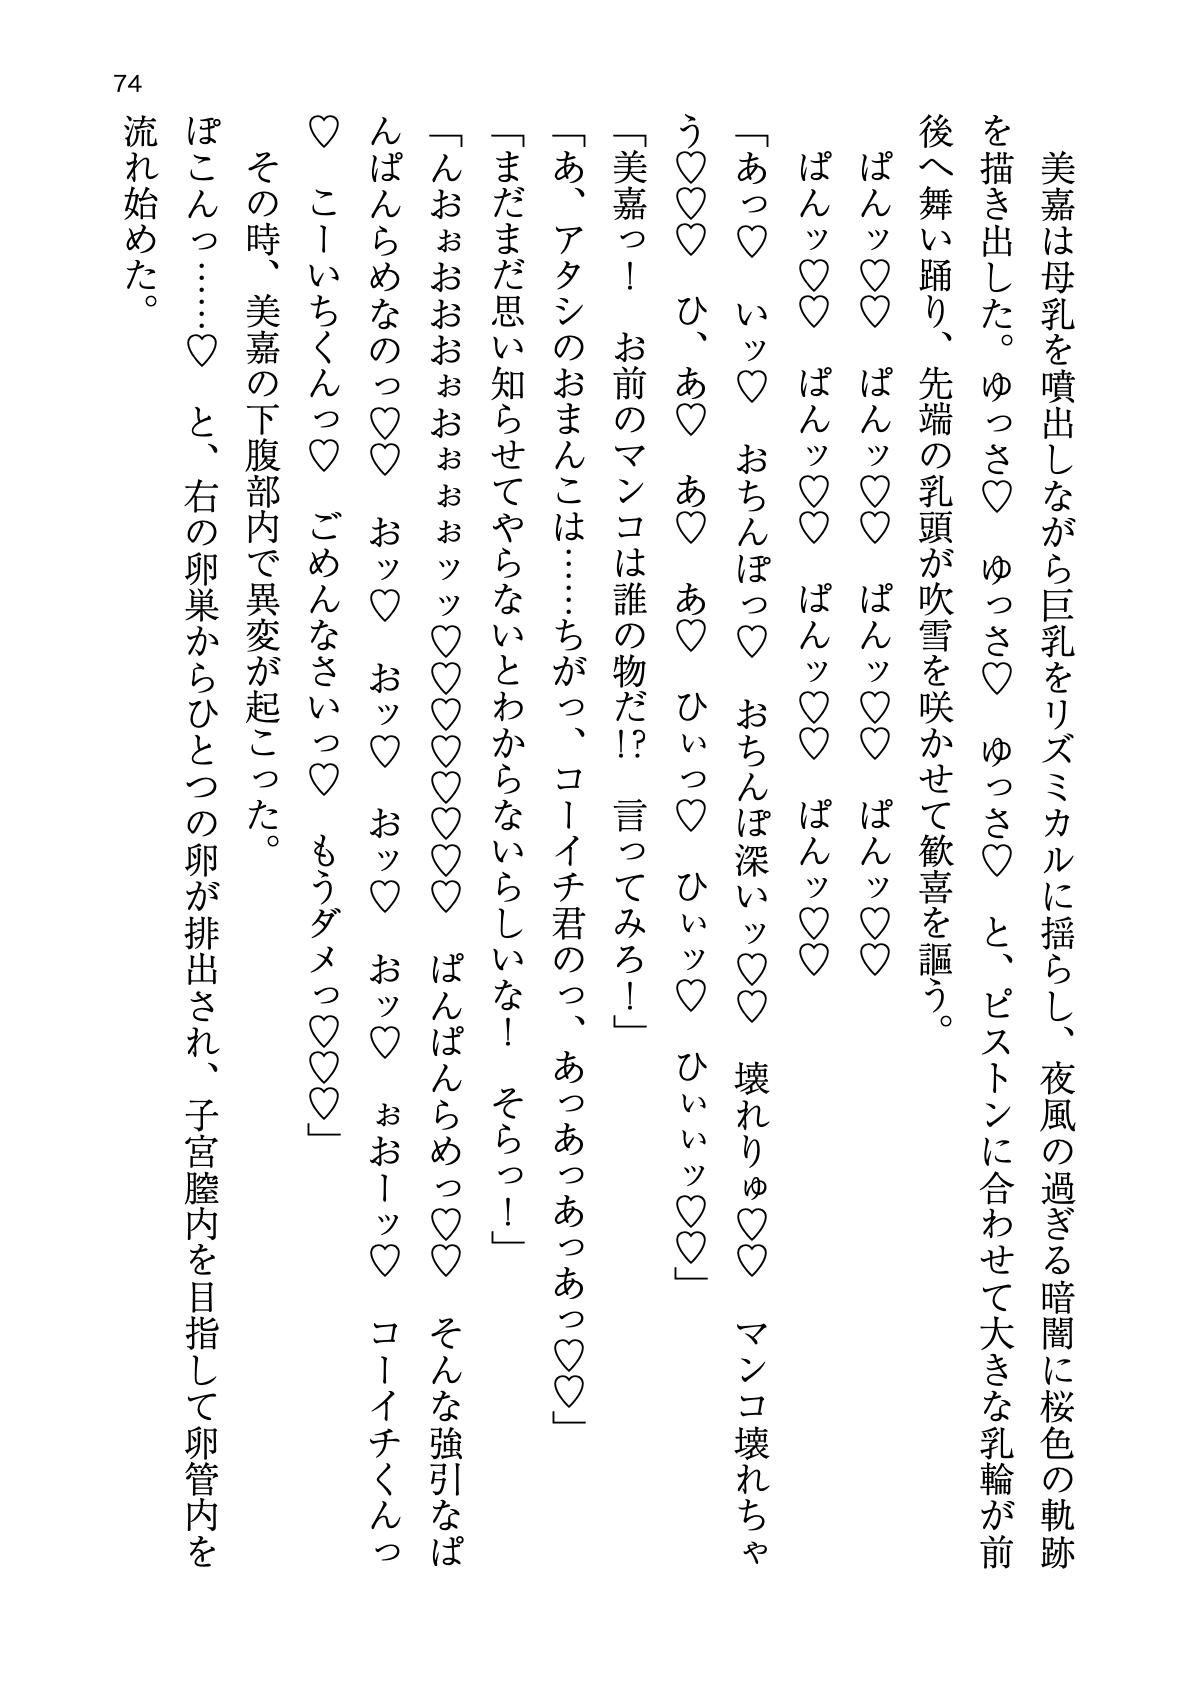 74
美嘉は母乳を噴出しながら巨乳をリズミカルに揺らし、夜風の過ぎる暗闇に桜色の軌跡
を描き出した。ゆっさ♡　ゆっさ♡　ゆっさ♡　と、ピストンに合わせて大きな乳輪が前
後へ舞い踊り、先端の乳頭が吹雪を咲かせて歓喜を謳う。
ぱんッ♡♡　ぱんッ♡♡　ぱんッ♡♡　ぱんッ♡♡
ぱんッ♡♡　ぱんッ♡♡　ぱんッ♡♡　ぱんッ♡♡
「あっ♡　いッ♡　おちんぽっ♡　おちんぽ深いッ♡♡　壊れりゅ♡♡　マンコ壊れちゃ
う♡♡♡　ひ、あ♡　あ♡　あ♡　ひぃっ♡　ひぃッ♡　ひぃぃッ♡♡」
「美嘉っ！　お前のマンコは誰の物だ!?　言ってみろ！」
「あ、アタシのおまんこは……ちがっ、コーイチ君のっ、あっあっあっあっ♡♡」
「まだまだ思い知らせてやらないとわからないらしいな！　そらっ！」
「んおぉおおおぉおぉぉぉッッ♡♡♡♡♡♡♡♡　ぱんぱんらめっ♡♡　そんな強引なぱ
んぱんらめなのっ♡♡　おッ♡　おッ♡　おッ♡　おッ♡　ぉおーッ♡　コーイチくんっ
♡　こーいちくんっ♡　ごめんなさいっ♡　もうダメっ♡♡♡」
その時、美嘉の下腹部内で異変が起こった。
ぽこんっ……♡　と、右の卵巣からひとつの卵が排出され、子宮膣内を目指して卵管内を
流れ始めた。